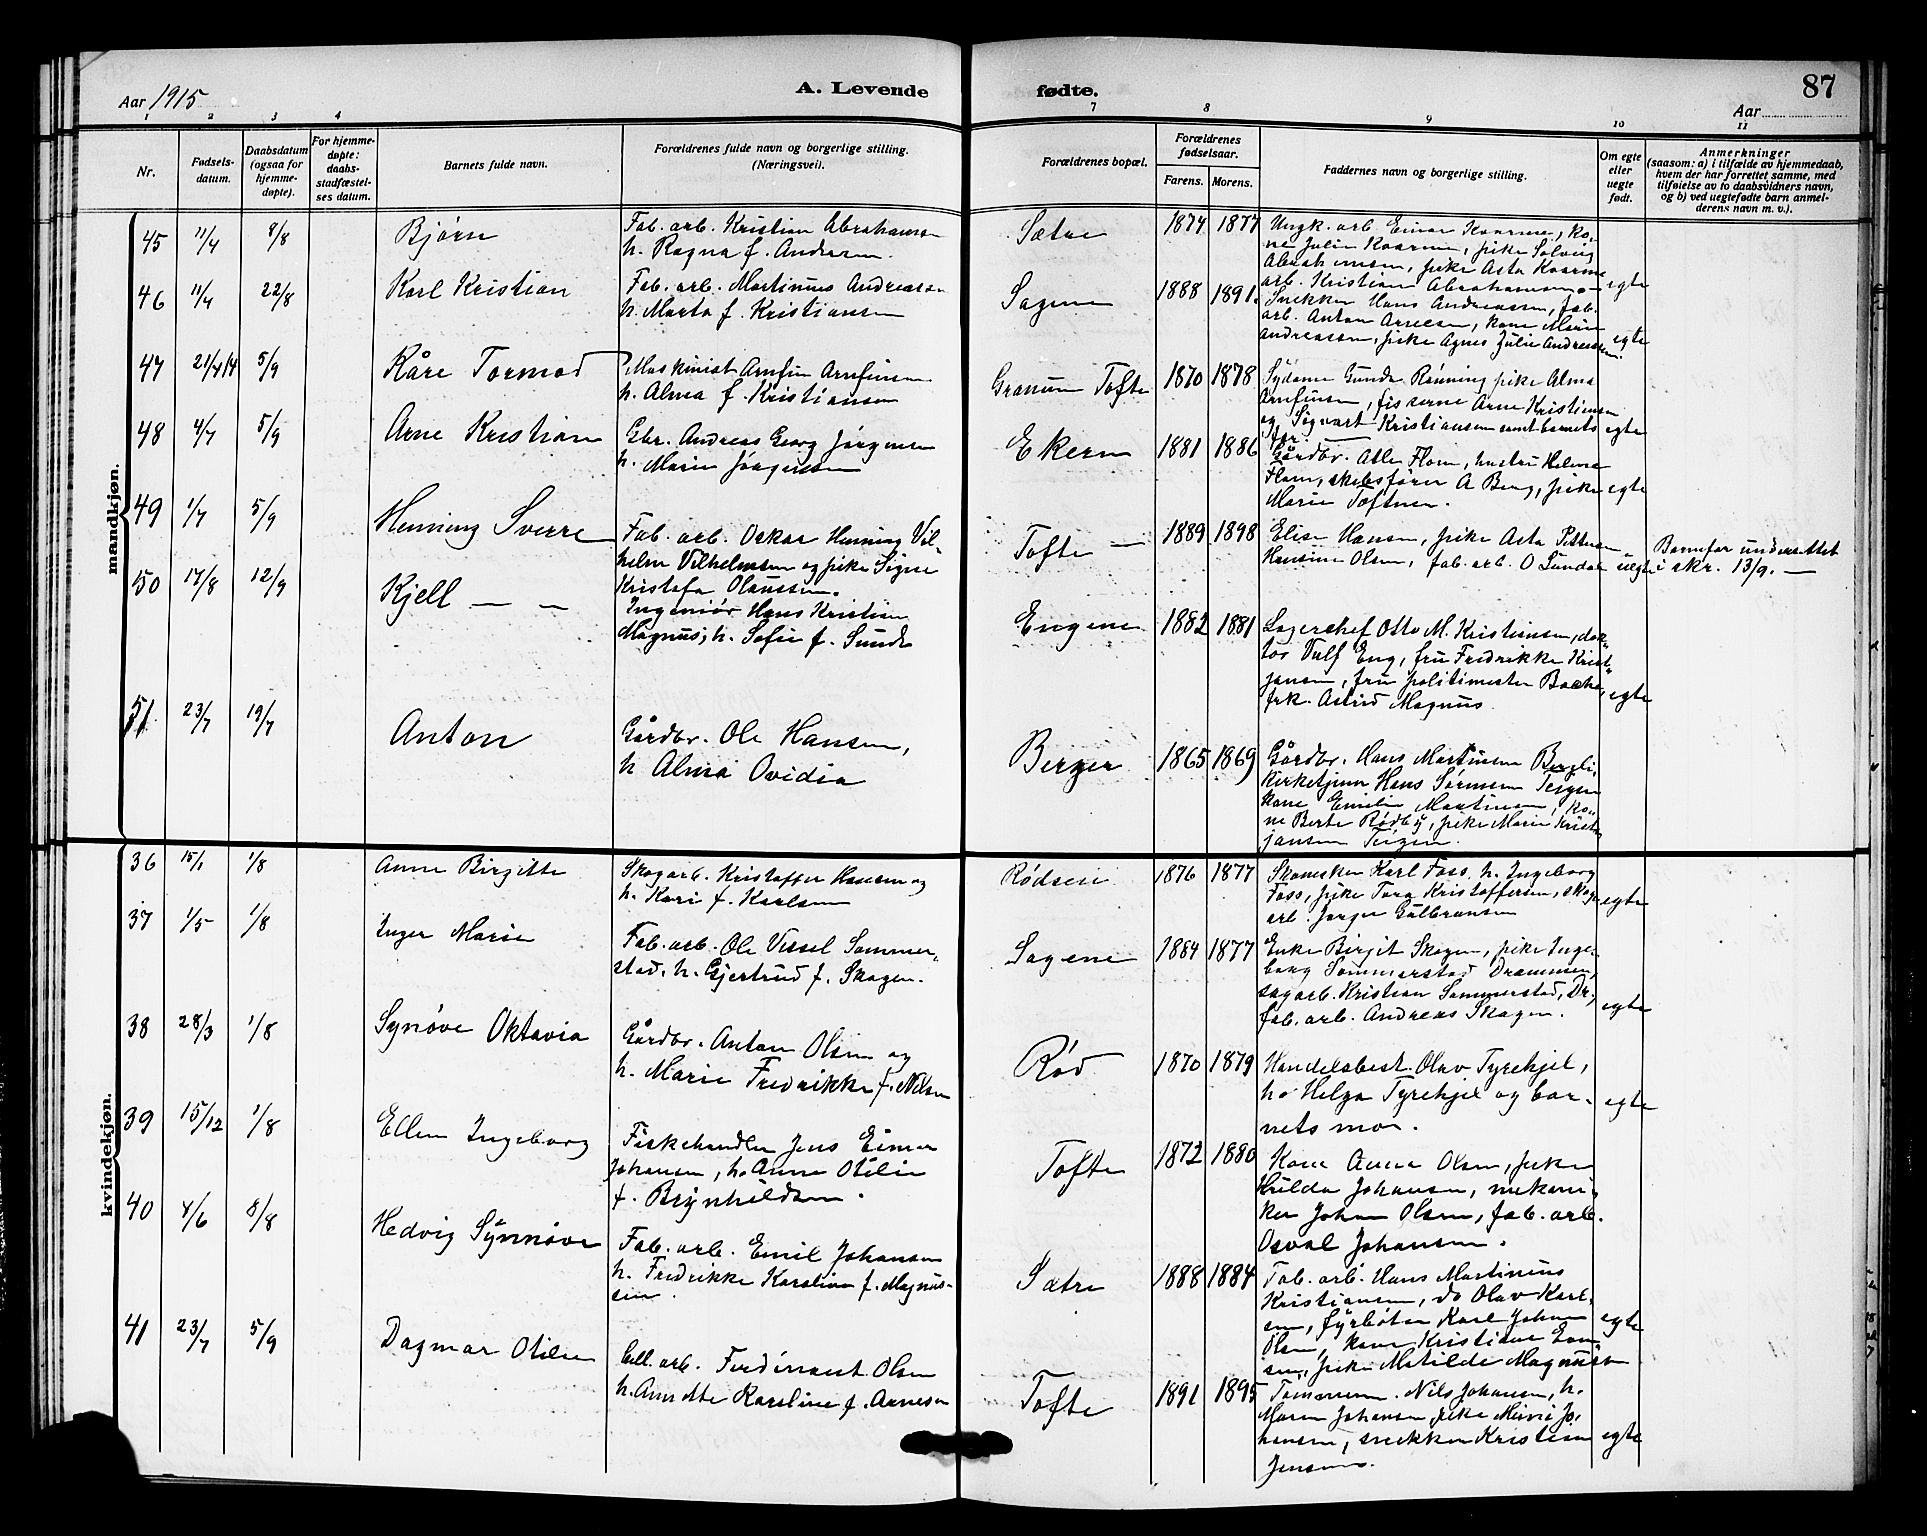 Aar 1915
A. Levende
fødte.
87
Aar
1 2 3 4
7 8 9 10 11
Nr.
Fødsels-
datum.
Daabsdatum
(ogsaa for
hjemme-
døpte).
For hjemme-
døpte:
daabs-
stadfæstel-
ses datum.
Barnets fulde navn.
Forældrenes fulde navn og borgerlige stilling.
(Næringsvei).
Forældrenes bopæl.
Forældrenes
fødselsaar.
Farens. Morens.
Faddernes navn og borgerlige stilling.
Om egte
eller
uegte
født.
Anmerkninger
(saasom: a) i tilfælde av hjemmedaab,
hvem der har forrettet samme, med
tilføielse av to daabsvidners navn,
og b) ved uegtefødte barn anmel-
derens navn m. v.).
mandkjøn.
45 11/4 8/8 Bjørn
Fab. arb. Kristian Abrahamsen
h. Ragna f. Andersen.
Sætre 1874 1877
Ungk. arb. Einar Kaarme, ko-
ne Julie Kaarme, pike Solveig
Abrahamsen, pike Asta Kaarme
arb. Kristian Abrahamsen
egte
46 11/4 22/8 Karl Kristian
Fab. arb. Martinius Andreassen
h. Marta f. Kristiansen
Sagene 1888 1891.
Snekker Hans Andreassen, fab.
arb. Anton Arnesen, kone Marie
Andreassen, pike Agnes Julie Andreassen.
egte
47 21/4 14 5/9 Kåre Tormod
Maskinist Arnfin Arnfinsen
h. Alma f. Kristiansen
Granum Tofte 1870 1878
Sydame Gunda Rønning pike Alma
Arnfinsen, fiskerne Arne Kristiansen
og Sigvart Kristiansen samt barnets
far. —
egte
48 4/7 5/9 Arne Kristian
Gbr. Andreas Georg Jørgensen
h. Marie Jørgensen
Ekern 1881 1886
Gårdbr. Atle Flom, hustru Helma
Flom, skibsfører A Berg, pike
Marie Toftner.
egte
49 1/7 5/9 Henning Sverre
Fab. arb. Oskar Henning Vil-
helm Vilhelmsen og pike Signe
Kristofa Olaussen.
Tofte — 1889 1898
Elise Hansen, pike Asta Pettersen
Hansine Olsen, fab. arb. O Lunde
uegte
Barnefar undersettet
i skr. 13/9. —
50 17/8 12/9 Kjell — —
Ingeniør Hans Kristian
Magnus, h. Sofie f. Sunde
Engene 1882 1881
Lagerchef Otto M. Kristiansen, dok-
tor Vulf Eng, fru Fredrikke Krist-
jansen, fru politimester Bache,
frk. Astrid Magnus.
egte
51. 23/7 19/7 Anton
Gårdbr. Ole Hansen,
h Alma Ovidia
Berger 1865 1869
Gårdbr. Hans Martinsen Bergli,
Kirketjener Hans Sørensen Teigen
kone Emilie Martinsen, ko-
ne Berte Rødby, pike Marie Krist-
jansen Teigen.
kvindekjøn.
36 15/1 1/8 Anne Birgitte
Skogarb. Kristoffer Hansen og
h. Kari f. Karlsen
Rødsen 1876 1877
Skomaker Karl Foss, h. Ingeborg
Foss, pike Tora Kristoffersen, skog-
arb. Jørgen Gulbransen
egte
37 1/5 1/8 Inger Marie
Fab. arb. Ole Vessel Sommer-
stad, h. Gjertrud f. Skagen.
Sagene 1884 1877
Enke Birgit Skagen, pike Inge-
borg Sommerstad Drammen,
sagarb. Kristian Sommerstad, Dr.,
fab. arb. Andreas Skagen.
egte
38 28/3 1/8 Synøve Oktavia
Gårdbr. Anton Olsen og
h. Marie Fredrikke f. Nilsen
Rød 1870 1879
Handelsbest. Olav Tyrehjel,
h. Helga Tyrehjel og bar-
nets mor.
egte
39 15/12 1/8 Ellen Ingeborg
Fiskehandler Jens Einar
Johansen, h. Anne Otilie
f. Brynhildsen.
Tofte 1872 1880
Kone Anna Olsen, pike
Hulda Johansen, mekani-
ker Johan Olsen, fab. arb.
Osval Johansen.
40 4/6 8/8 Hedvig Synnøve
Fab. arb. Emil Johansen
h. Fredrikke Karoline f. Magnus-
sen.
Sætre 1888 1884
Fab. arb. Hans Martinius
Kristiansen, do Olav Karl-
sen, fyrbøter Karl Johan
Olsen, kone Kristiane
pike Matilde Magnussen
egte
41 23/7 5/9 Dagmar Otilie
Cell. arb. Ferdinant Olsen
h. Anndtte Karoline f. Arnesen
Tofte 1891 1895
Tømmerm. Nils Johansen, h.
Maren Johansen, pike Minie Jo-
hansen, snekker Kristian
Jensen.
egte